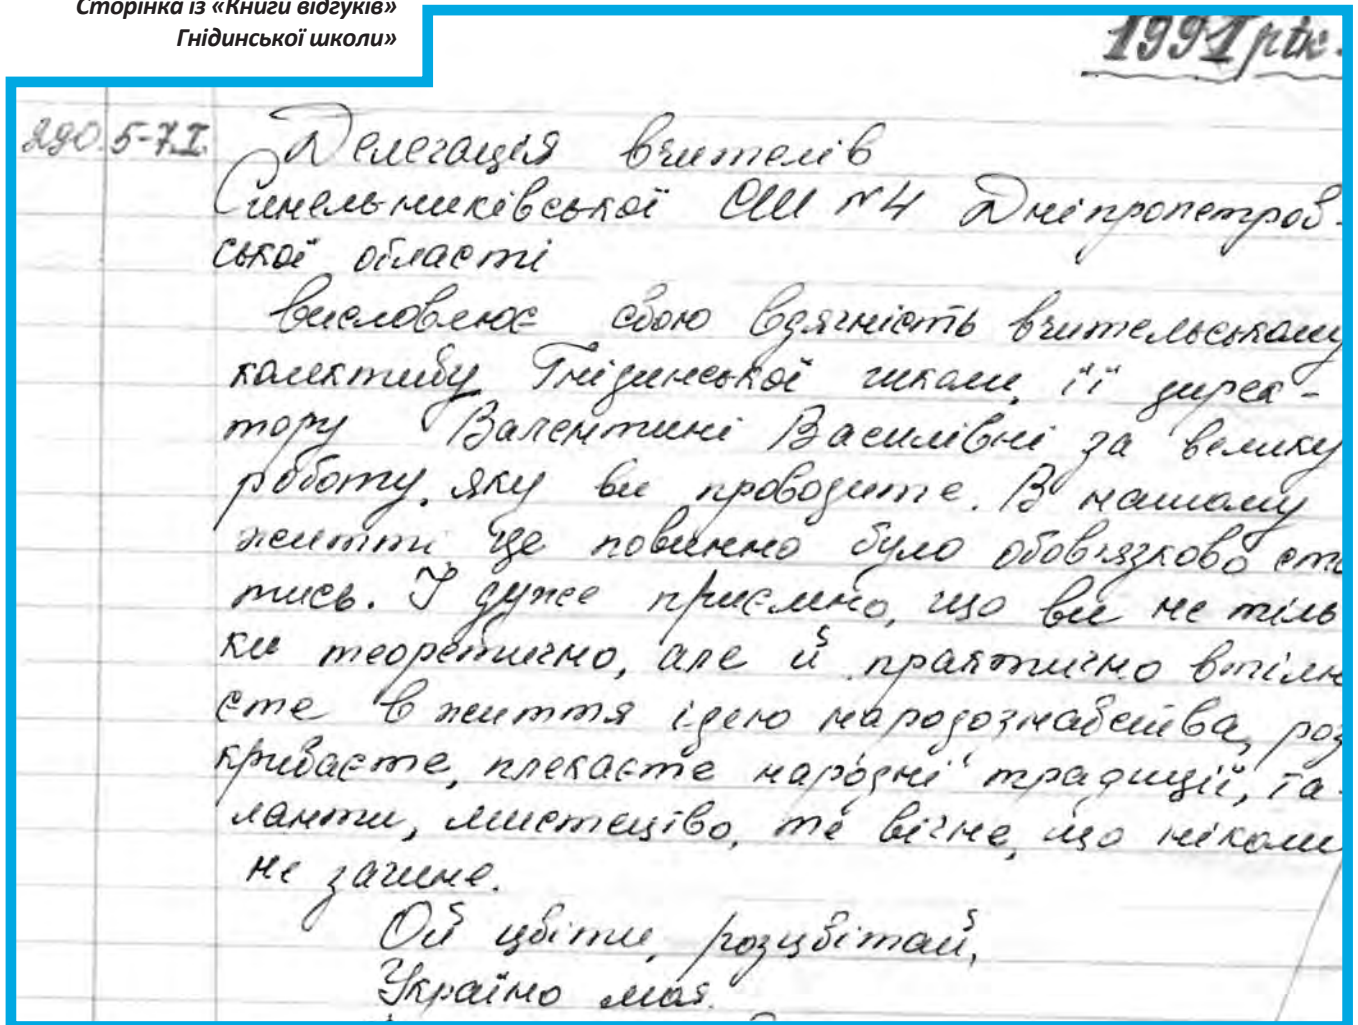 Сторінка із «Книги відгуків»
Гнідинської школи»
1991 рік.
290. 5-7.I. Делегація вчителів
Синельниківської СШ №4 Дніпропетров-
ської області
висловлює свою вдячність вчительському
колективу Гнідинської школи, її дирек-
тору Валентині Василівні за велику
роботу, яку ви проводите. В нашому
житті це повинно було обов'язково ста
тись. І дуже приємно, що ви не тіль
ки теоретично, але й практично втілю
єте в життя ідею народознавства, роз
криваєте, плекаєте народні традиції, та-
ланти, мистецтво, те вічне, що ніколи
не загине.
Ой цвіти, розцвітай,
Україно моя.